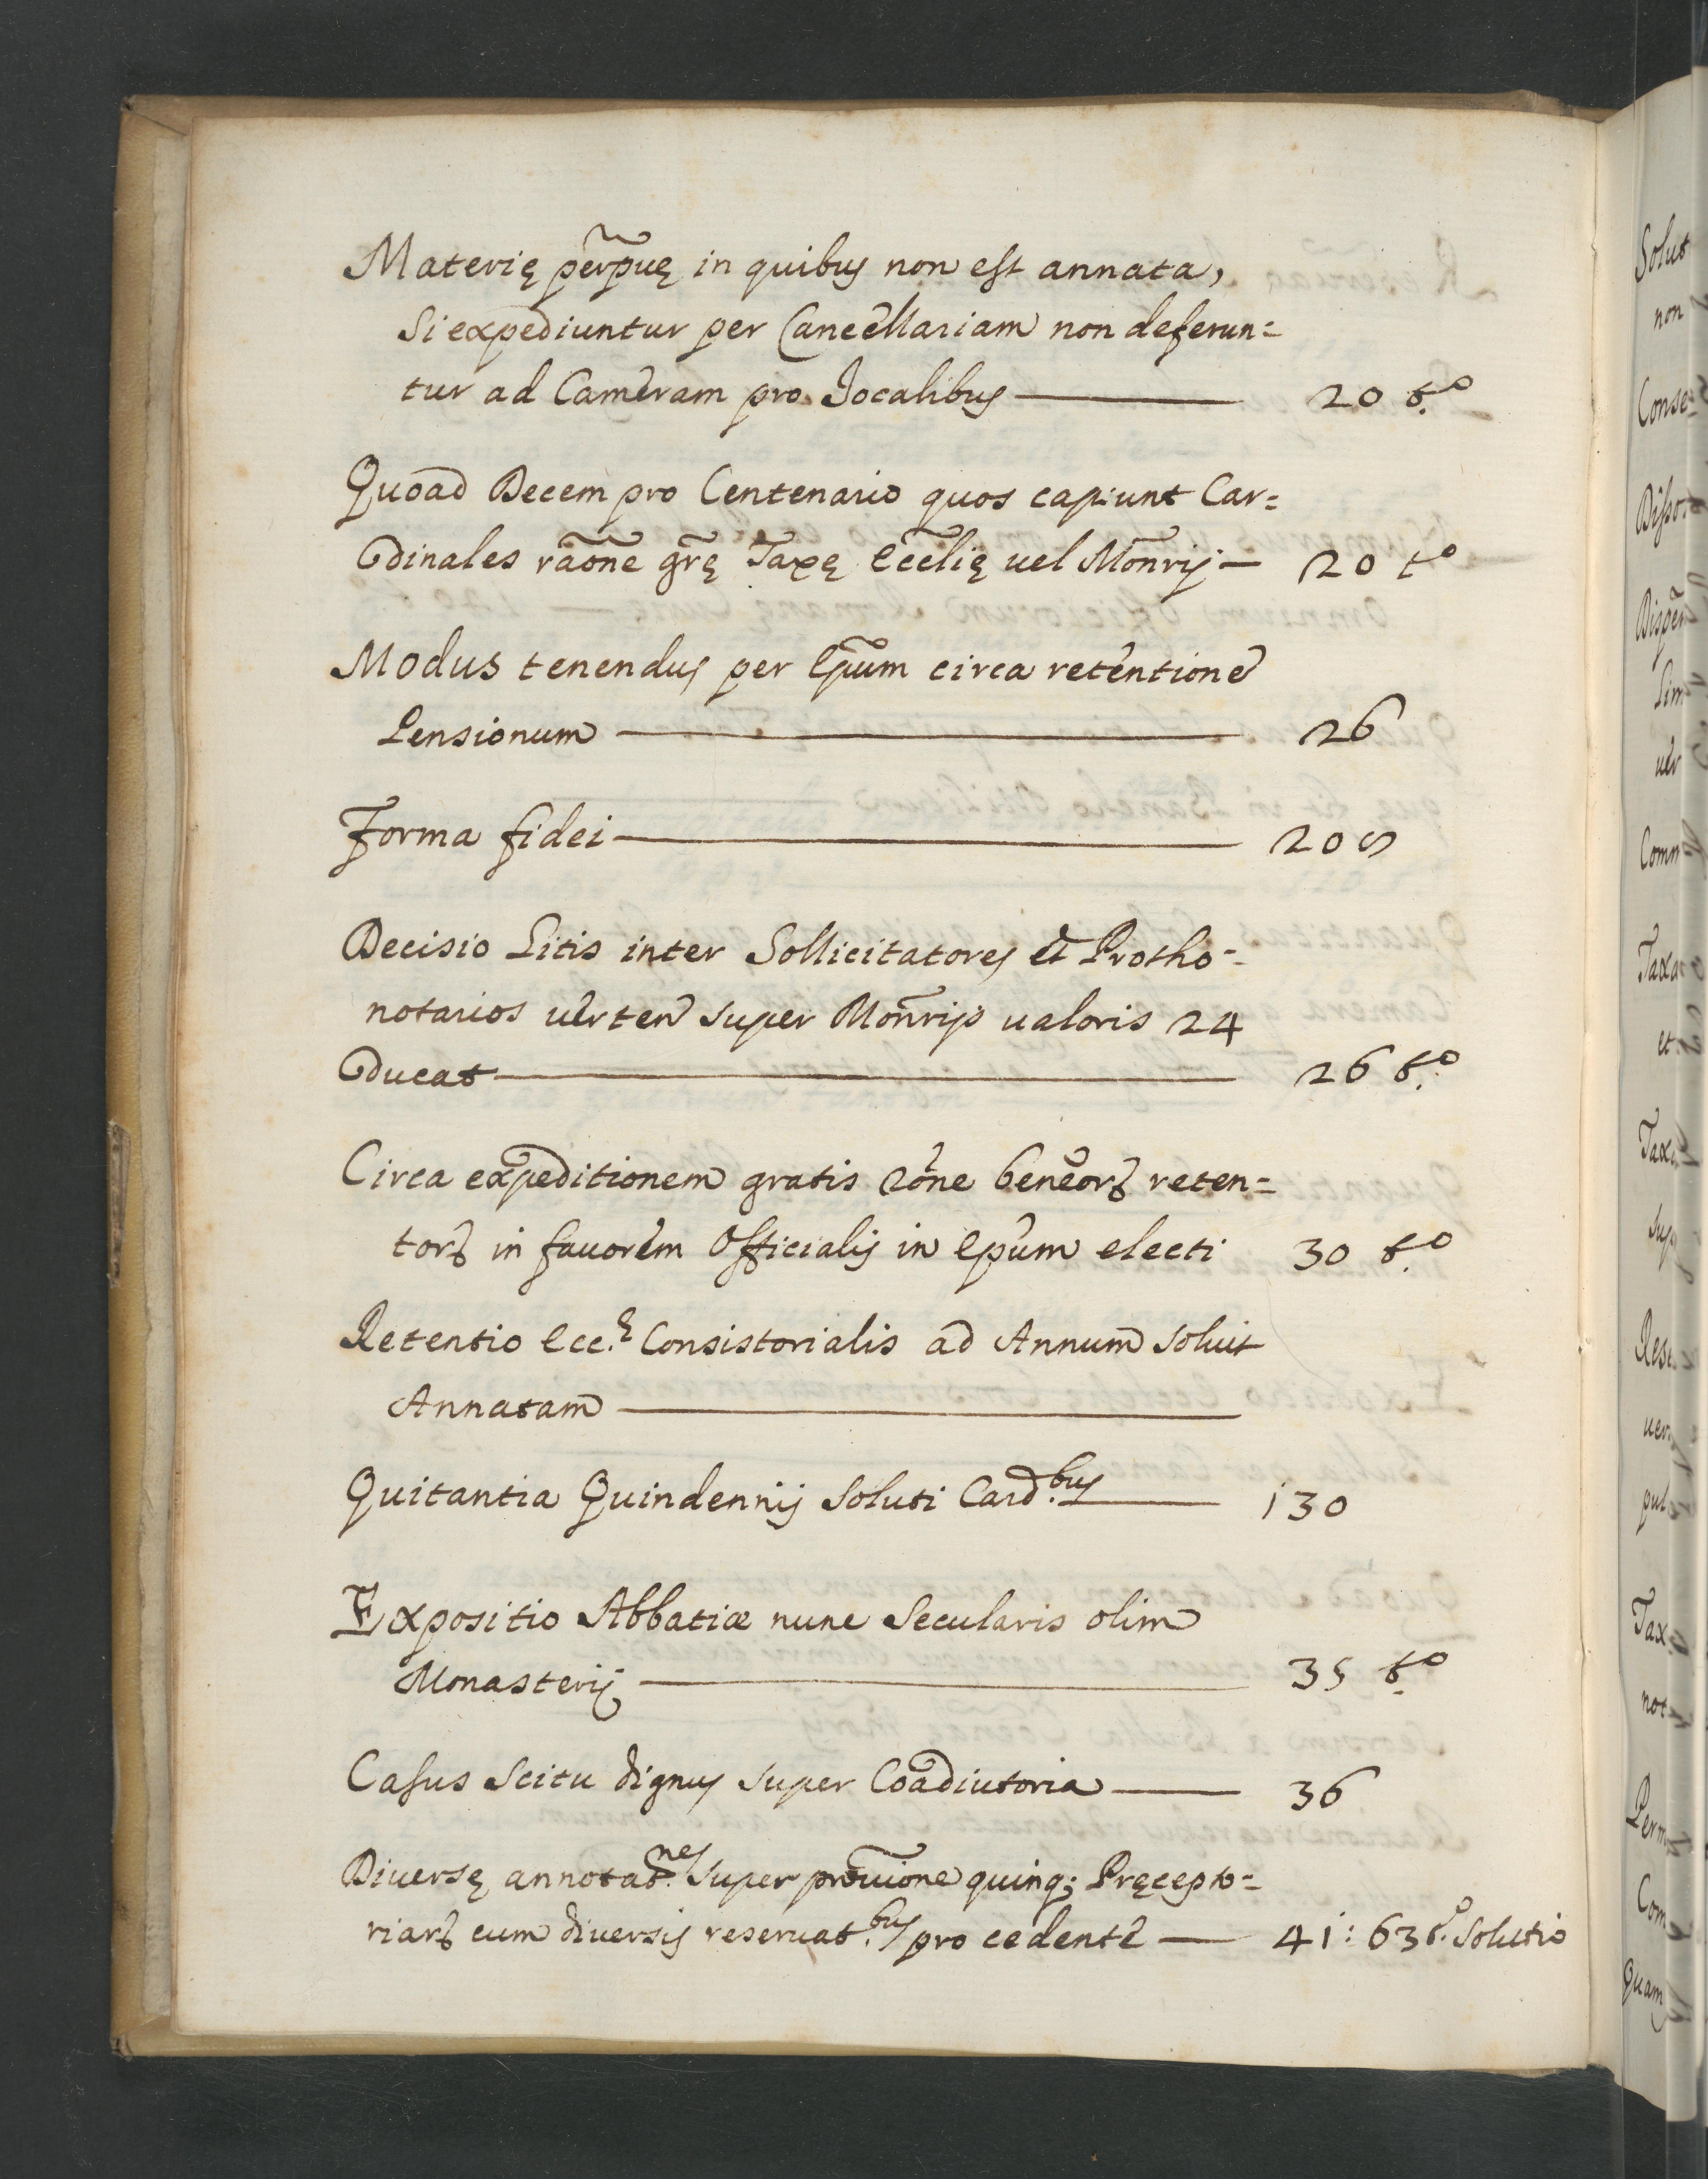 Materię perpuę in quibus non est annata,
Si expediuntur per Cancellariam non deferun=
tur ad Cameram pro Jocalibus — 20 t.o
Quoad Decem pro Centenario quos capiunt Car=
dinales raōne grę Taxę Eccłię uel Monrij — 20 to
Modus tenendus per Epum circa retentionē
Pensionum — 26
Forma fidei — 205
Decisio Litis inter Sollicitatores et Protho=
notarios uerten super Monrijs ualoris 24
Ducat — 26 t.o
Circa expeditionem gratis rōne beneor reten=
tor in fauorem Officialis in Epum electi 30 t.o
Retentio Ecc. Consistorialis ad Annum Soluit
Annatam —
Quitantia Quindennij Soluti Card.bus — 130
Expositio Abbatiæ nunc Secularis olim
Monasterij — 35 t.o
Casus Scitu dignus super Coadiutoria — 36
Diuersę annotat.nes super prouione quinq; Pręcepto=
riar cum diuersis reseruat.bus pro cedente — 41: 63 t.o Solutio
Solut
non